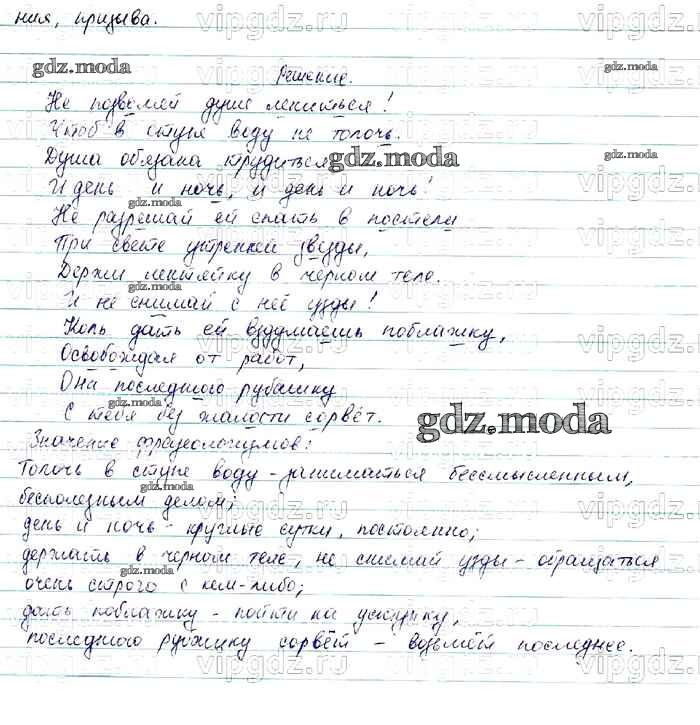 ния, призыва.
Решение.
Не позволяй душе лениться!
Чтоб в ступе воду не толочь.
Душа обязана трудиться
И день и ночь, и день и ночь!
Не разрешай ей спать в постели
При свете утренней звезды,
Держи лентяйку в чёрном теле.
И не снимай с неё узды!
Коль дать ей вздумаешь поблажку,
Освобождая от работ,
Она последнюю рубашку
С тебя без жалости сорвёт.
Значение фразеологизмов:
Толочь в ступе воду - заниматься бессмысленным,
бесполезным делом;
день и ночь - круглые сутки, постоянно;
держать в чёрном теле, не снимай узды - обращаться
очень строго с кем-либо;
дать поблажку - пойти на уступку,
последнюю рубашку сорвёт - возьмёт последнее.
gdz.moda
vipgdz.ru